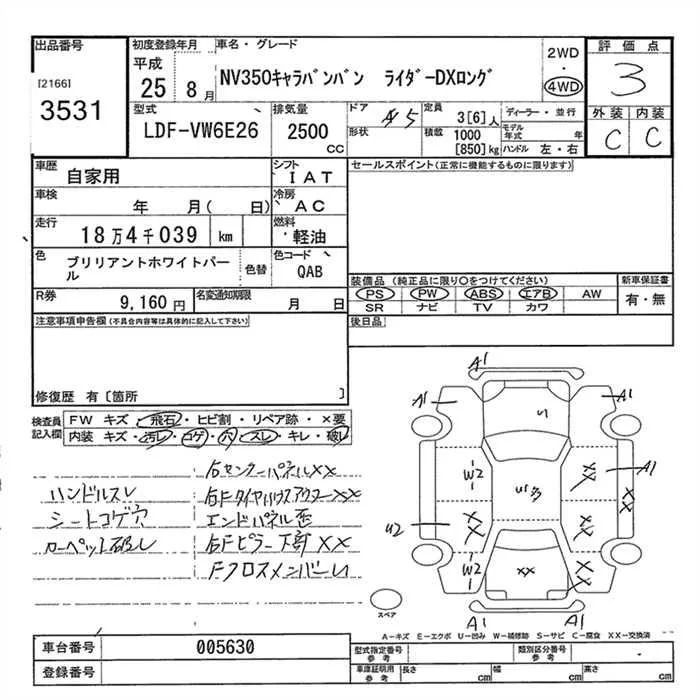 出品番号
[2166]
3531
初度登録年月
平成
25年 8月
車名・グレード
NV350キャラバンバン ライダーDXロング
2WD
・
4WD
評価点
3
外装 内装
C C
型式
LDF-VW6E26
排気量
2500 CC
ドア
5
形状
定員 3[6]人
積載 1000 [850]kg
ディーラー・並行
モデル年式 年
ハンドル 左・右
車歴 自家用
シフト IAT
車検 年 月( 日)
冷房 AC
走行 18万4千039 km
燃料 軽油
色 ブリリアントホワイトパール
色替
色コード QAB
R券 9,160円
名変通知期限 月 日
セールスポイント(正常に機能するものに限ります)
装備品(純正品に限り○をつけてください)
PS PW ABS エアB AW
SR ナビ TV カワ
新車保証書
有・無
後日品
注意事項申告欄(不具合内容等は具体的に記入して下さい)
修復歴 有[箇所 ]
検査員記入欄
FW キズ・飛石・ヒビ割・リペア跡・×要
内装 キズ・汚レ・コゲ・穴・スレ・キレ・破レ
ハンドルスレ
シートコゲ穴
カーペット破レ
右センターパネルXX
右Fタイヤハウスアウター XX
エンドパネル歪
右Fピラー下部XX
Fクロスメンバーレ
A1
A1
A1
W2
XX
A1
XX
U2
XX
XX
W2
XX
XX
A1
A1
スペア
A-キズ E-エクボ U-凹み W-補修跡 S-サビ C-腐食 XX-交換済
車台番号 005630
登録番号
型式指定番号 参考
類別区分番号 参考
-
車庫証明用 参考
長さ cm
幅 cm
高さ cm